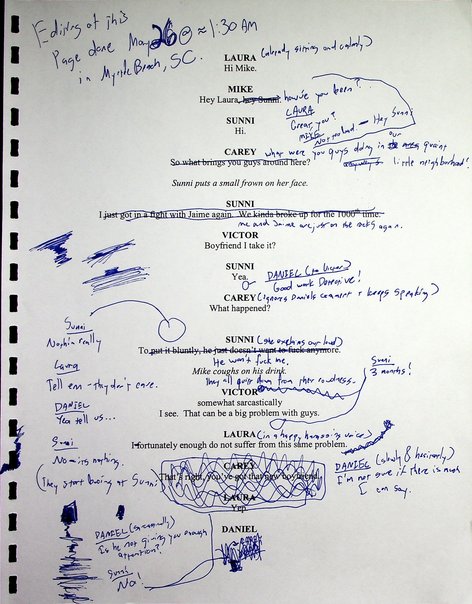 Editing of this
Page done May 26 @ ≈ 1:30 AM
in Myrtle Beach, SC.
LAURA (already sitting and calmly)
Hi Mike.
MIKE
Hey Laura, hey Sunni. how've you been?
LAURA
Great, you?
MIKE
Not too bad. - Hey Sunni
SUNNI
Hi.
CAREY what were you guys doing in our quaint
So what brings you guys around here? little neighborhood?
Sunni puts a small frown on her face.
SUNNI
I just got in a fight with Jaime again. We kinda broke up for the 1000th time.
me and Jaime are, on the rocks again.
VICTOR
Boyfriend I take it?
SUNNI
Yea.
DANIEL (to Victor)
Good work Detective!
CAREY (ignores Daniels comment & keeps speaking)
What happened?
Sunni
Nothin really
Laura
Tell em - they don't care.
DANIEL
Yea tell us...
Sunni
No - its nothing.
(They start looking at Sunni)
SUNNI (she exhales out loud)
To put it bluntly, he just doesn't want to fuck anymore.
He won't fuck me.
Mike coughs on his drink.
They all quiet down from her rowdness.
Sunni
3 months!
VICTOR
somewhat sarcastically
I see. That can be a big problem with guys.
LAURA (in a happy, humorous voice)
I fortunately enough do not suffer from this same problem.
CAREY
That's right, you've got that new boyfriend.
LAURA
Yep.
DANIEL (slowly & hesitantly)
I'm not sure if there is much
I can say.
DANIEL
DANIEL (sarcastically)
Is he not giving you enough
attention?
Sunni
No!